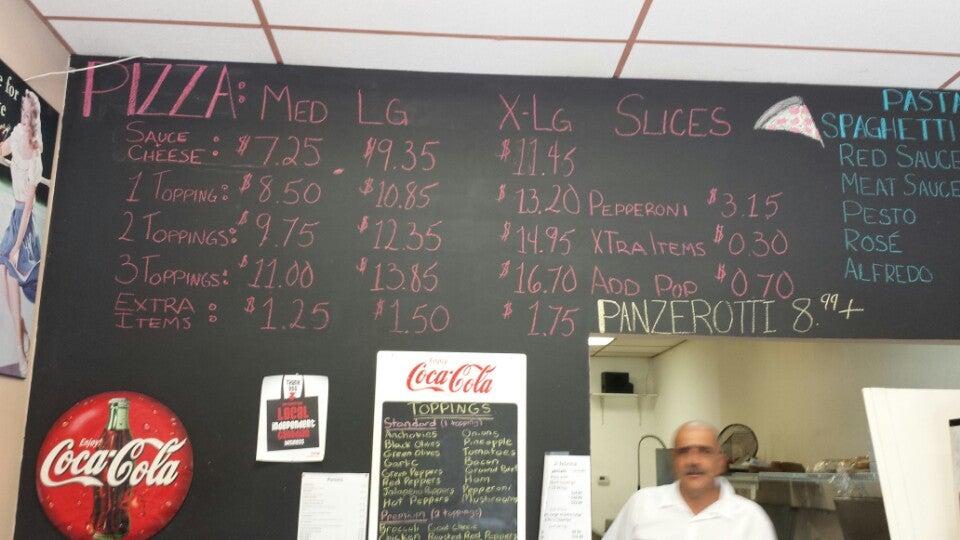 PIZZA: MED LG X-LG SLICES
SAUCE CHEESE: $7.25 $9.35 $11.45
1 TOPPING: $8.50 $10.85 $13.20 PEPPERONI $3.15
2 TOPPINGS: $9.75 $12.35 $14.95 XTRA ITEMS $0.30
3 TOPPINGS: $11.00 $13.85 $16.70 ADD POP $0.70
EXTRA ITEMS: $1.25 $1.50 $1.75
PANZEROTTI 8.99+
PASTA
SPAGHETTI
RED SAUCE
MEAT SAUCE
PESTO
ROSÉ
ALFREDO
for
Enjoy
Coca-Cola
THANK YOU
LOCAL
independent
BUSINESS
Enjoy
Coca-Cola
TOPPINGS
Standard (1 topping)
Anchovies Onions
Black Olives Pineapple
Green Olives Tomatoes
Garlic Bacon
Green Peppers Ground Beef
Red Peppers Ham
Jalapeno Peppers Pepperoni
Hot Peppers Mushrooms
Premium (2 toppings)
Broccoli Goat Cheese
Chicken Roasted Red Peppers